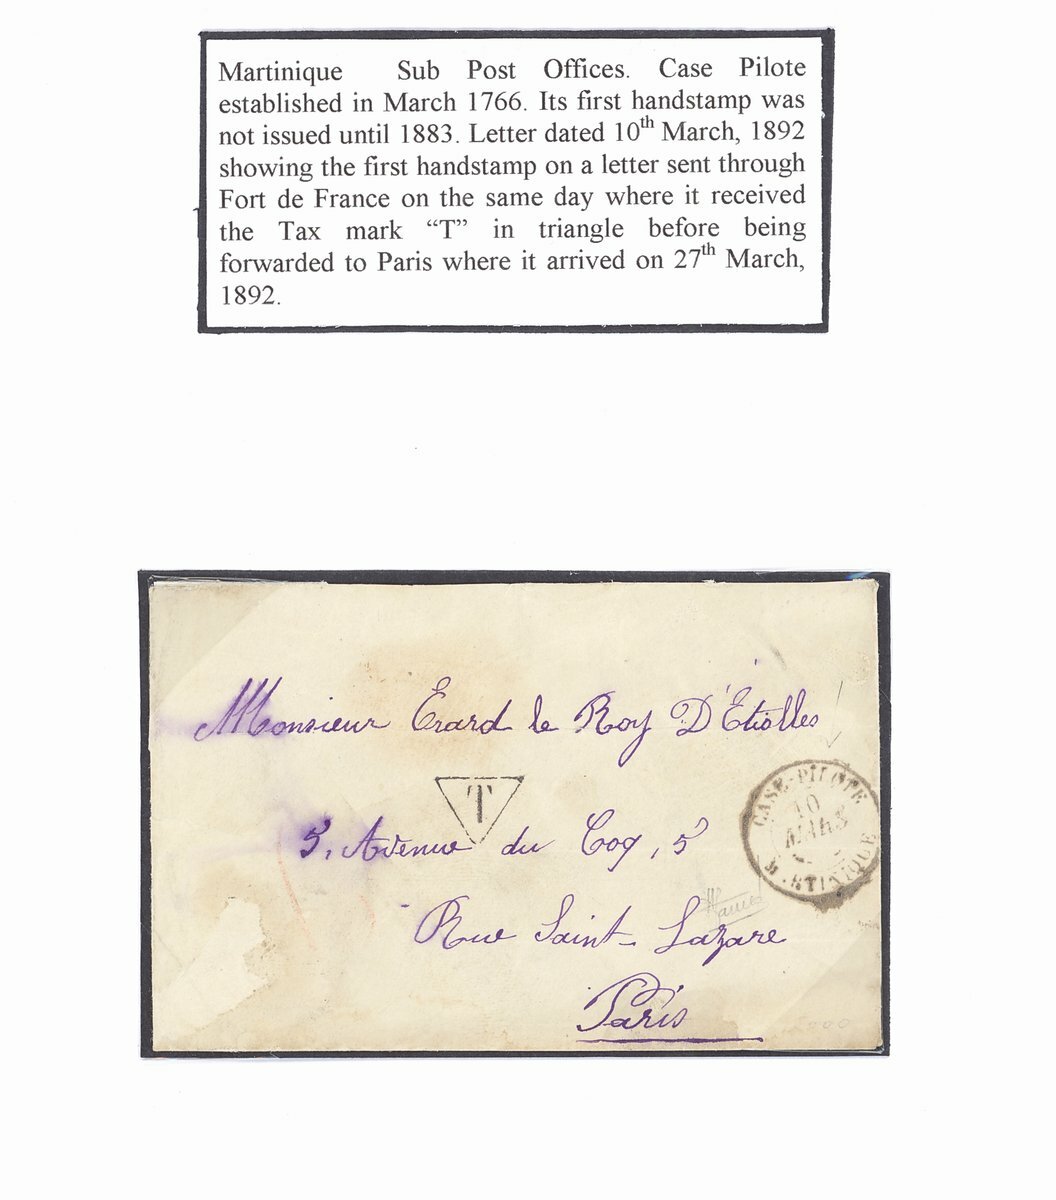 Martinique Sub Post Offices. Case Pilote
established in March 1766. Its first handstamp was
not issued until 1883. Letter dated 10th March, 1892
showing the first handstamp on a letter sent through
Fort de France on the same day where it received
the Tax mark “T” in triangle before being
forwarded to Paris where it arrived on 27th March,
1892.
Monsieur Erard le Roy D'Étiolles
T
CASE-PILOTE
10
MARS
MARTINIQUE
5, Avenue du Coq, 5
Rue Saint-Lazare
Paris